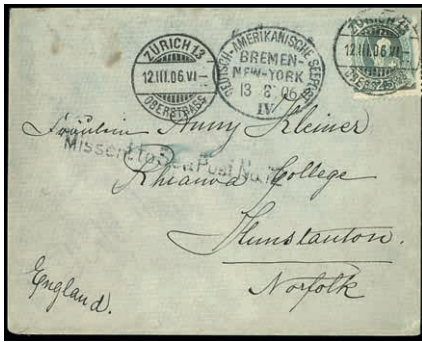 ZÜRICH 13
12.III.06.VI-
OBERSTRASS
DEUTSCH-AMERIKANISCHE SEEPOST
BREMEN-
NEW-YORK
13 06
IV
ZÜRICH 13
12.III.06.VI-
OBERSTRASS
Fräulein Anny Kleiner
Missent to Sea Post No.
Rhianva College
Hunstanton.
Norfolk
England.